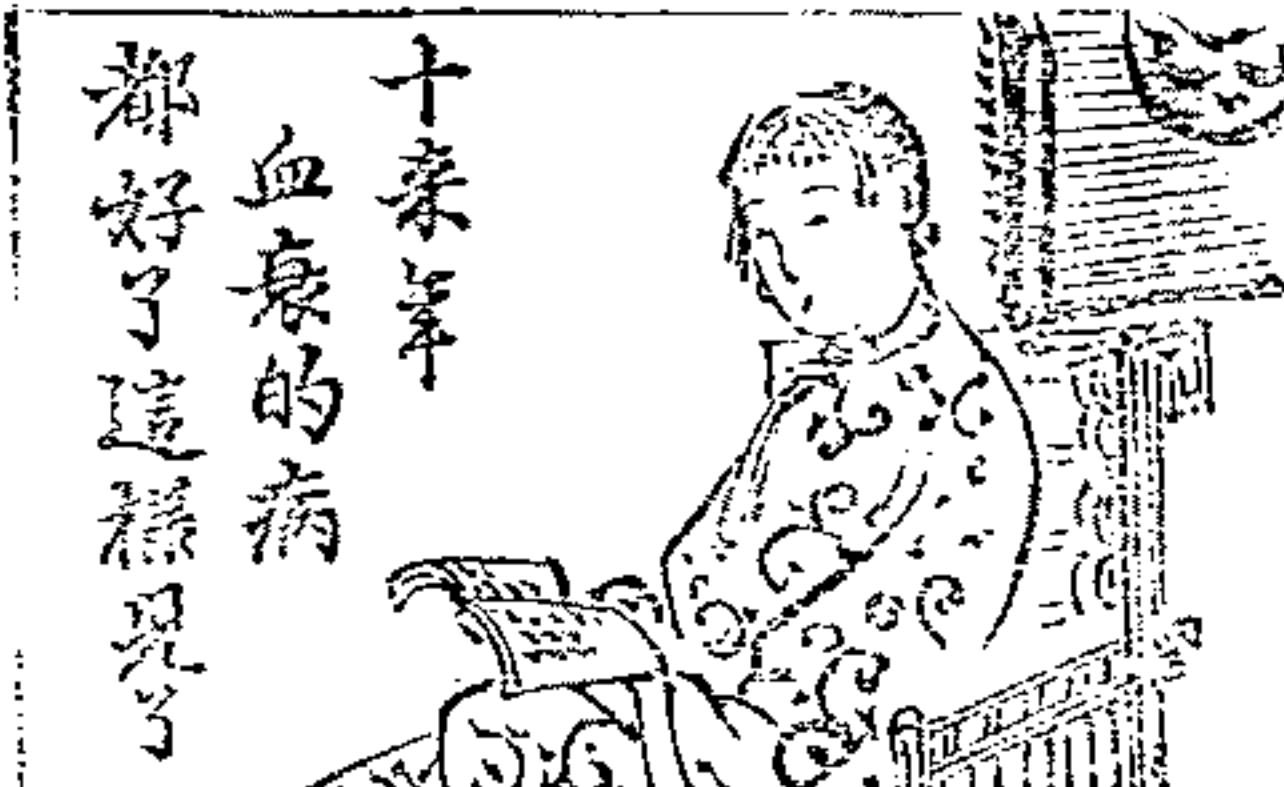 十來年
血衰的病
都好了這樣兒了